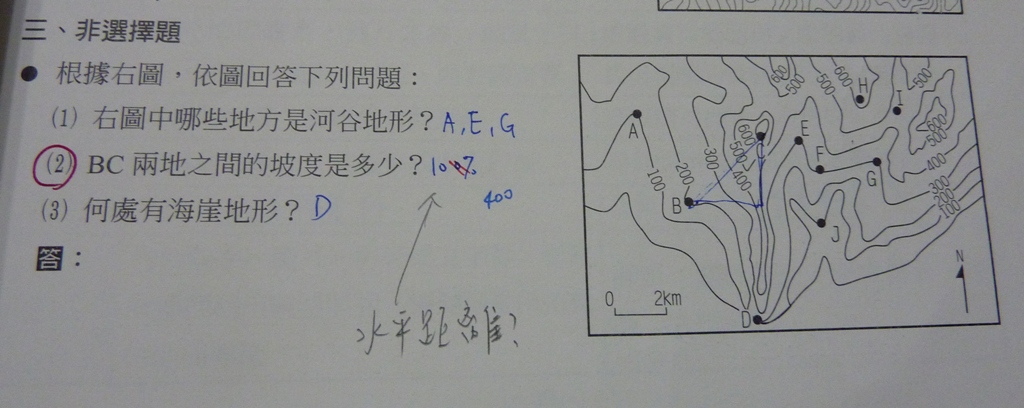 三、非選擇題
● 根據右圖，依圖回答下列問題：
(1) 右圖中哪些地方是河谷地形？A, E, G
(2) BC 兩地之間的坡度是多少？10%
400
(3) 何處有海崖地形？D
答：
水平距離？
600
500
600
500
500
H
I
600
500
400
A
E
500
F
300
400
200
G
300
200
100
100
B
J
N
0 2km
D